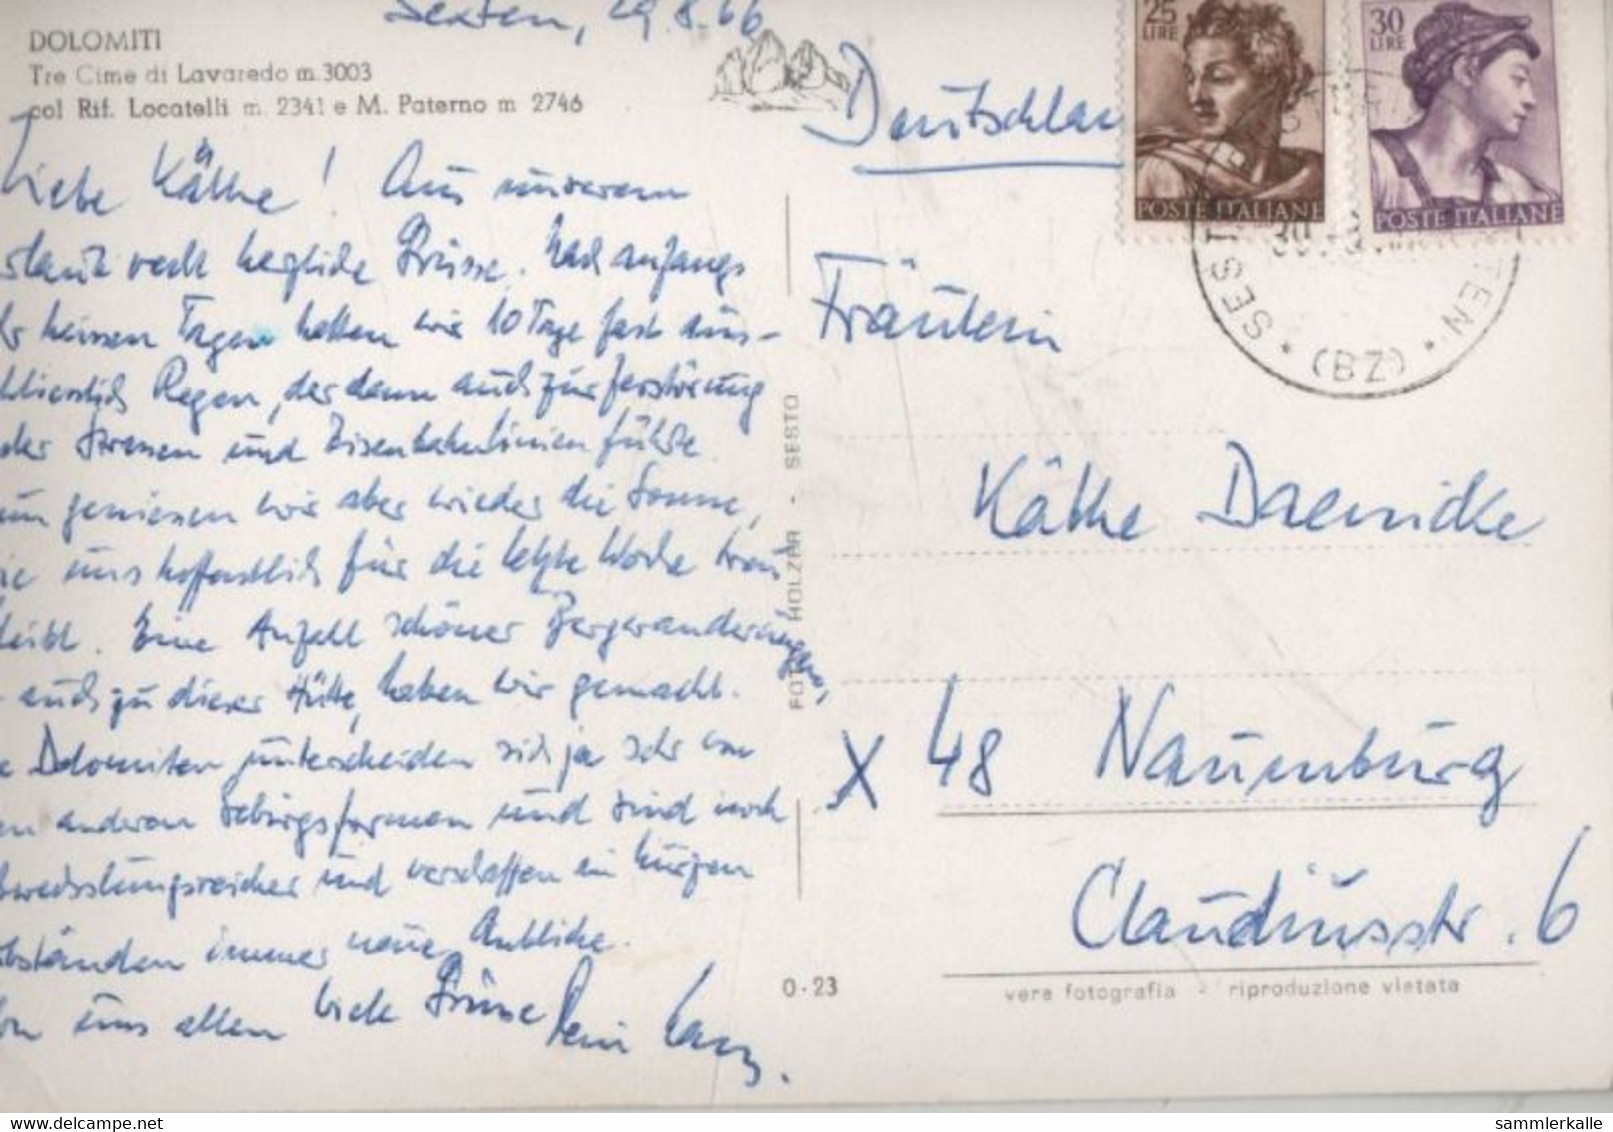 Sexten, 29.8.66
DOLOMITI
Tre Cime di Lavaredo m. 3003
col Rif. Locatelli m. 2341 e M. Paterno m 2746
Liebe Käthe! Aus unserem
herzliche Grüsse. Nach anfangs
heissen Tagen hatten wir 10 Tage fast aus-
Regen, der dann auch zur Zerstörung
der Strassen und Eisenbahnlinien führte.
geniessen wir aber wieder die Sonne,
uns hoffentlich für die letzte Woche treu
bleibt. Eine Anzahl schöner Bergwanderungen,
auch zu dieser Hütte, haben wir gemacht.
Dolomiten unterscheiden sich ja sehr von
anderen Gebirgsformen und sind noch
und verschaffen in kurzen
Abständen immer neue Anblicke.
Von uns allen viele Grüsse Dein
FOTO HOLZER - SESTO
0-23
Deutschlan
25
LIRE
POSTE ITALIANE
30
LIRE
POSTE ITALIANE
SEST
TEN
(BZ)
Fräulein
Käthe Daenicke
X 48 Naumburg
Claudiusstr. 6
vera fotografia - riproduzione vietata
sammlerkalle